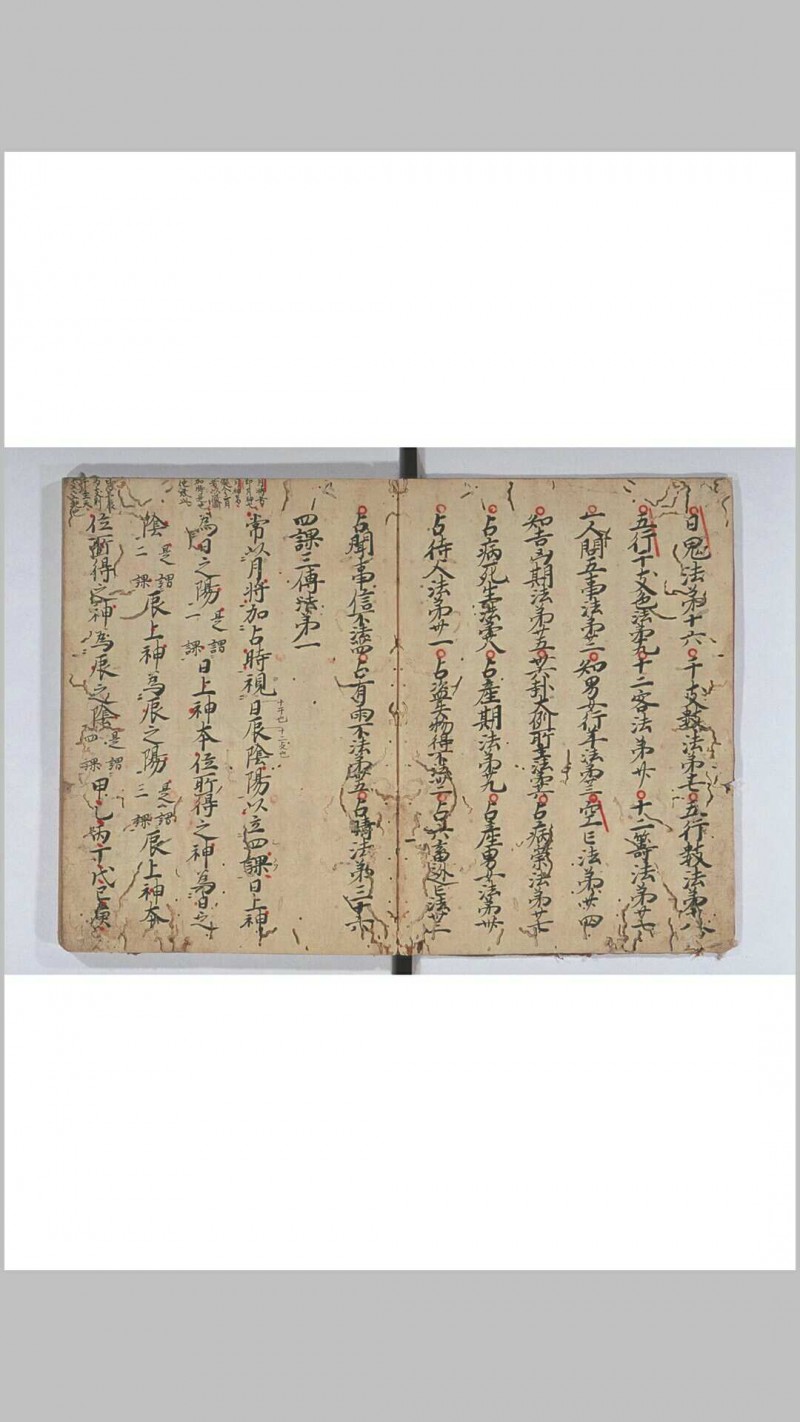 日鬼法第十六 干支数法第七 五行数法第八
五行干支色法第九 十二客法第廿 十二籌法第廿一
一人問五事法第廿二 知男女行年法第廿三 空亡法第廿四
知吉凶期法第廿五 卅六卦大例所主法第廿六 占病祟法第廿七
占病死生法第廿八 占産期法第廿九 占産男女法第卅
占待人法第卅一 占盗失物得不法卅二 占六畜逃亡法卅三
占聞事信不法卅四 占有雨不法第卅五 占晴法第三十六
四課三傳法第一
常以月将加占時視日辰陰陽以立四課日上神
十干也 十二支也
為日之陽 是謂一課 日上神本位所得之神為日之
陰 是謂二課 辰上神為辰之陽 是謂三課 辰上神本
位所得之神為辰之陰 是謂四課 甲乙丙丁戊己庚